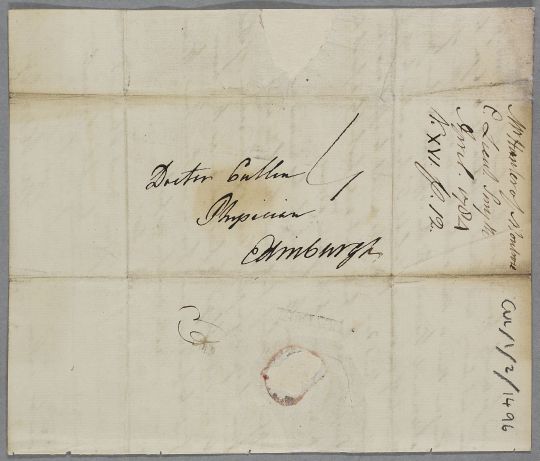 Doctor Cullen
Physician
Edinburgh
Mr Hunter of Montrose
C. Lieut Smyth
April. 1784
V. XVI. p. 12.
CUL/1/2/1496